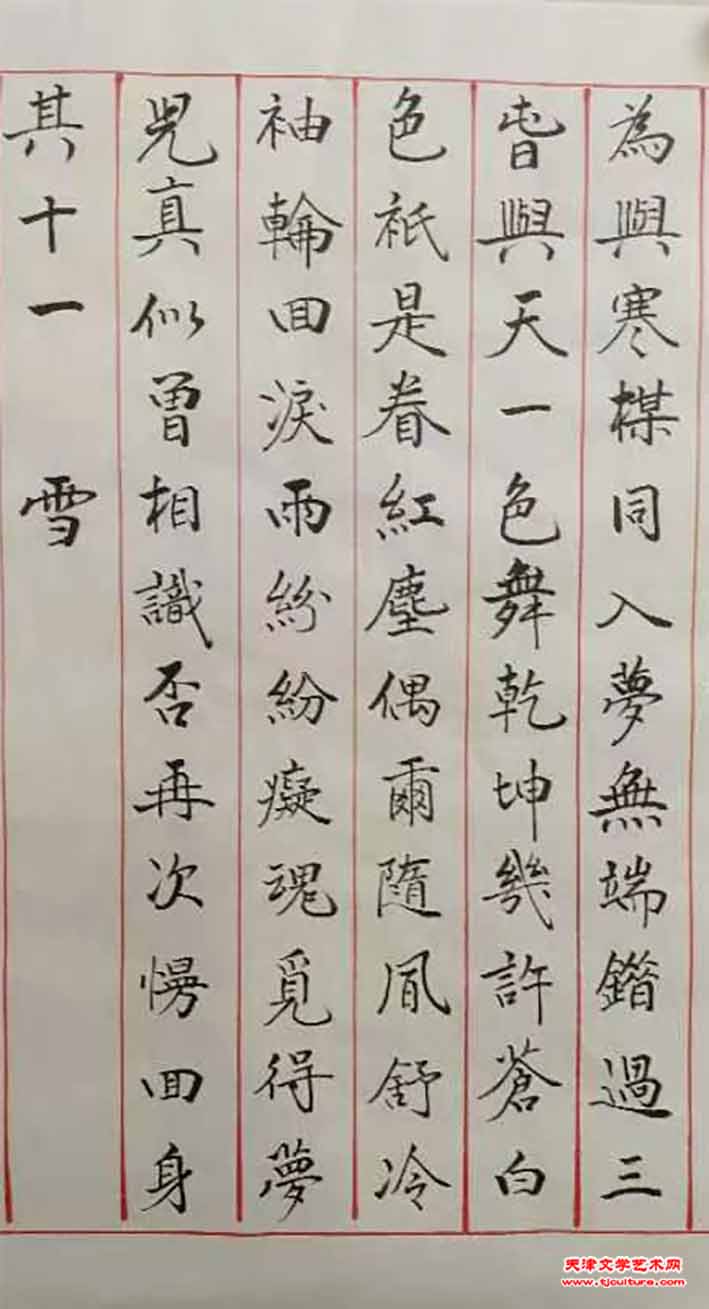 為與寒楳同入夢無端錯過三
旾與天一色舞乾坤幾許蒼白
色祇是眷紅塵偶爾隨風舒冷
袖輪回淚雨紛紛癡魂覓得夢
兒真似曾相識否再次愣回身
其十一 雪
天津文学艺术网
www.tjculture.com